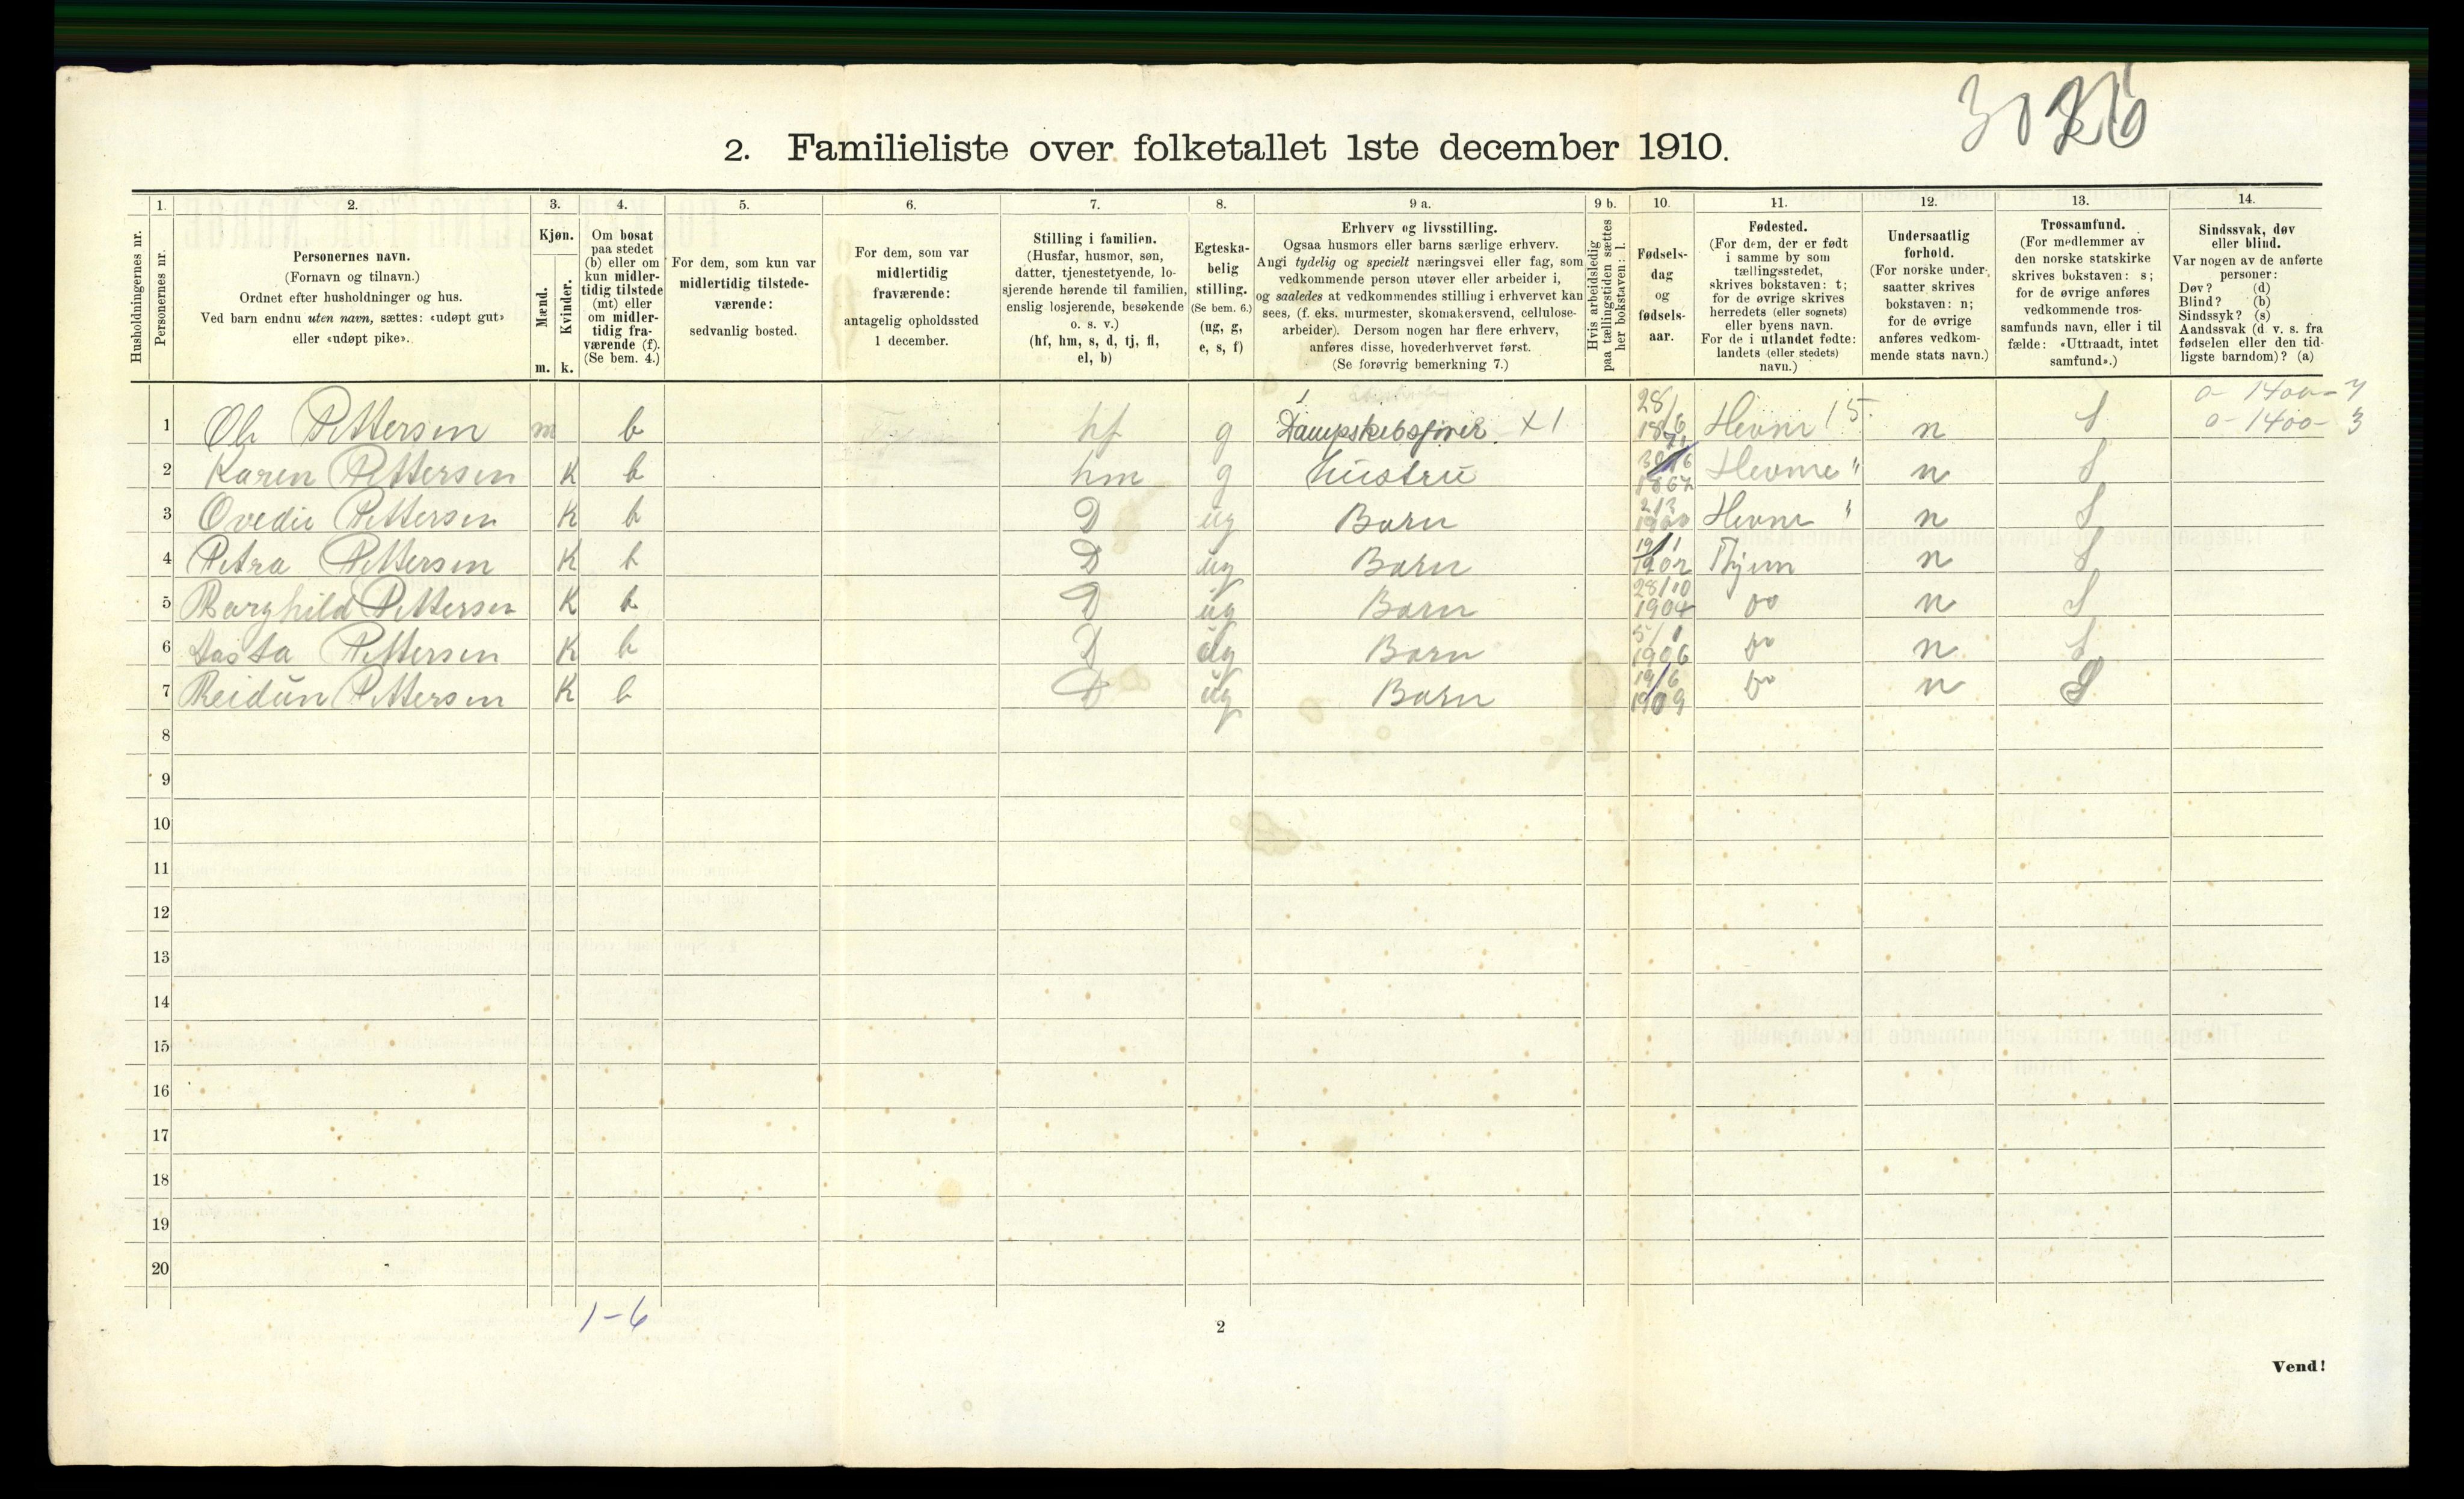 2. Familieliste over folketallet 1ste december 1910.
1. 2. 3. 4. 5. 6. 7. 8. 9 a. 9 b. 10. 11. 12. 13. 14.
Husholdningernes nr.
Personernes nr.
Personernes navn.
(Fornavn og tilnavn.)
Ordnet efter husholdninger og hus.
Ved barn endnu uten navn, sættes: «udøpt gut»
eller «udøpt pike».
Kjøn.
Mænd.
Kvinder.
m. k.
Om bosat
paa stedet
(b) eller om
kun midler-
tidig tilstede
(mt) eller
om midler-
tidig fra-
værende (f).
(Se bem. 4.)
For dem, som kun var
midlertidig tilstede-
værende:
sedvanlig bosted.
For dem, som var
midlertidig
fraværende:
antagelig opholdssted
1 december.
Stilling i familien.
(Husfar, husmor, søn,
datter, tjenestetyende, lo-
sjerende hørende til familien,
enslig losjerende, besøkende
o. s. v.)
(hf, hm, s, d, tj, fl,
el, b)
Egteska-
belig
stilling.
(Se bem. 6.)
(ug, g,
e, s, f)
Erhverv og livsstilling.
Ogsaa husmors eller barns særlige erhverv.
Angi tydelig og specielt næringsvei eller fag, som
vedkommende person utøver eller arbeider i,
og saaledes at vedkommendes stilling i erhvervet kan
sees, (f. eks. murmester, skomakersvend, cellulose-
arbeider). Dersom nogen har flere erhverv,
anføres disse, hovederhvervet først.
(Se forøvrig bemerkning 7.)
Hvis arbeidsledig
paa tællingstiden sættes
her bokstaven: l.
Fødsels-
dag
og
fødsels-
aar.
Fødested.
(For dem, der er født
i samme by som
tællingsstedet,
skrives bokstaven: t;
for de øvrige skrives
herredets (eller sognets)
eller byens navn.
For de i utlandet fødte:
landets (eller stedets)
navn.)
Undersaatlig
forhold.
(For norske under-
saatter skrives
bokstaven: n;
for de øvrige
anføres vedkom-
mende stats navn.)
Trossamfund.
(For medlemmer av
den norske statskirke
skrives bokstaven: s;
for de øvrige anføres
vedkommende tros-
samfunds navn, eller i til
fælde: «Uttraadt, intet
samfund».)
Sindssvak, døv
eller blind.
Var nogen av de anførte
personer:
Døv? (d)
Blind? (b)
Sindssyk? (s)
Aandssvak (d v. s. fra
fødselen eller den tid-
ligste barndom)? (a)
1 Pettersen m b hf g X1 28/6 Hevne n S
2 Karen Pettersen K b hm g hustru Hevne " n S
3 Ovedie Pettersen K b D ug Barn 1900 Hevne " n S
4 Petra Pettersen K b D ug Barn 19/1 1902 n S
5 Borghild Pettersen K b D ug Barn 28/10 1904 do n S
6 Pettersen K b D ug Barn 5/1 1906 do n S
7 Reidun Pettersen K b D ug Barn 19/6 1909 do n S
8
9
10
11
12
13
14
15
16
17
18
19
20
1-6
2
Vend!